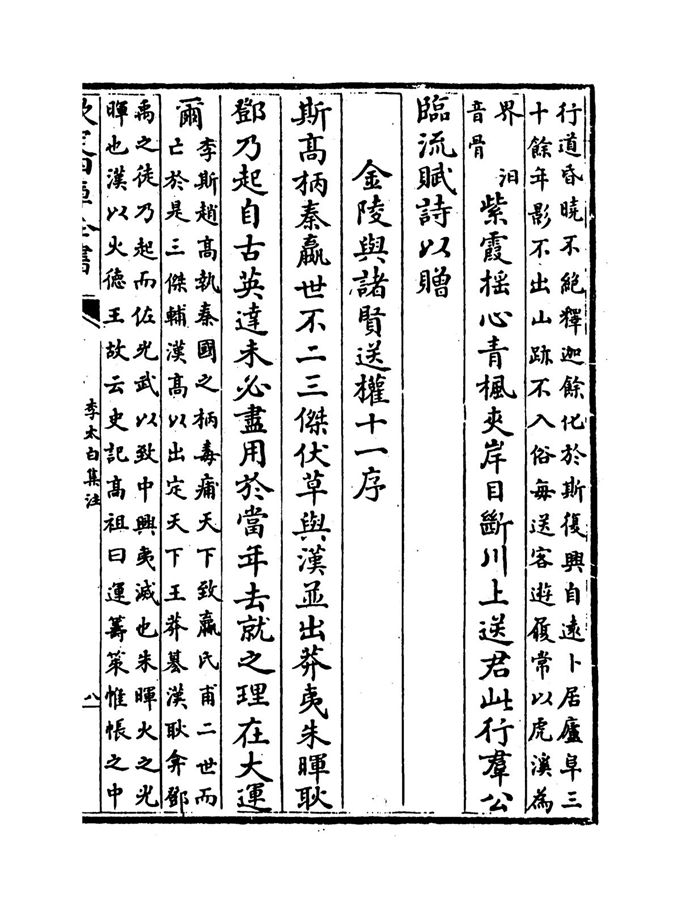 行道昏曉不絶釋迦餘化於斯復興自遠卜居廬阜三
十餘年影不出山跡不入俗每送客遊履常以虎溪為
界　汨
音骨
紫霞揺心青楓夾岸目斷川上送君此行羣公
臨流賦詩以贈
金陵與諸賢送權十一序
斯髙柄秦嬴世不二三傑伏草與漢並出莽夷朱暉耿
鄧乃起自古英達未必盡用於當年去就之理在大運
爾
李斯趙髙執秦國之柄毒痡天下致嬴氏甫二世而
亡於是三傑輔漢髙以出定天下王莽簒漢耿弇鄧
禹之徒乃起而佐光武以致中興夷滅也朱暉火之光
暉也漢以火徳王故云史記髙祖曰運籌策帷帳之中
欽定四庫全書
李太白集注
八